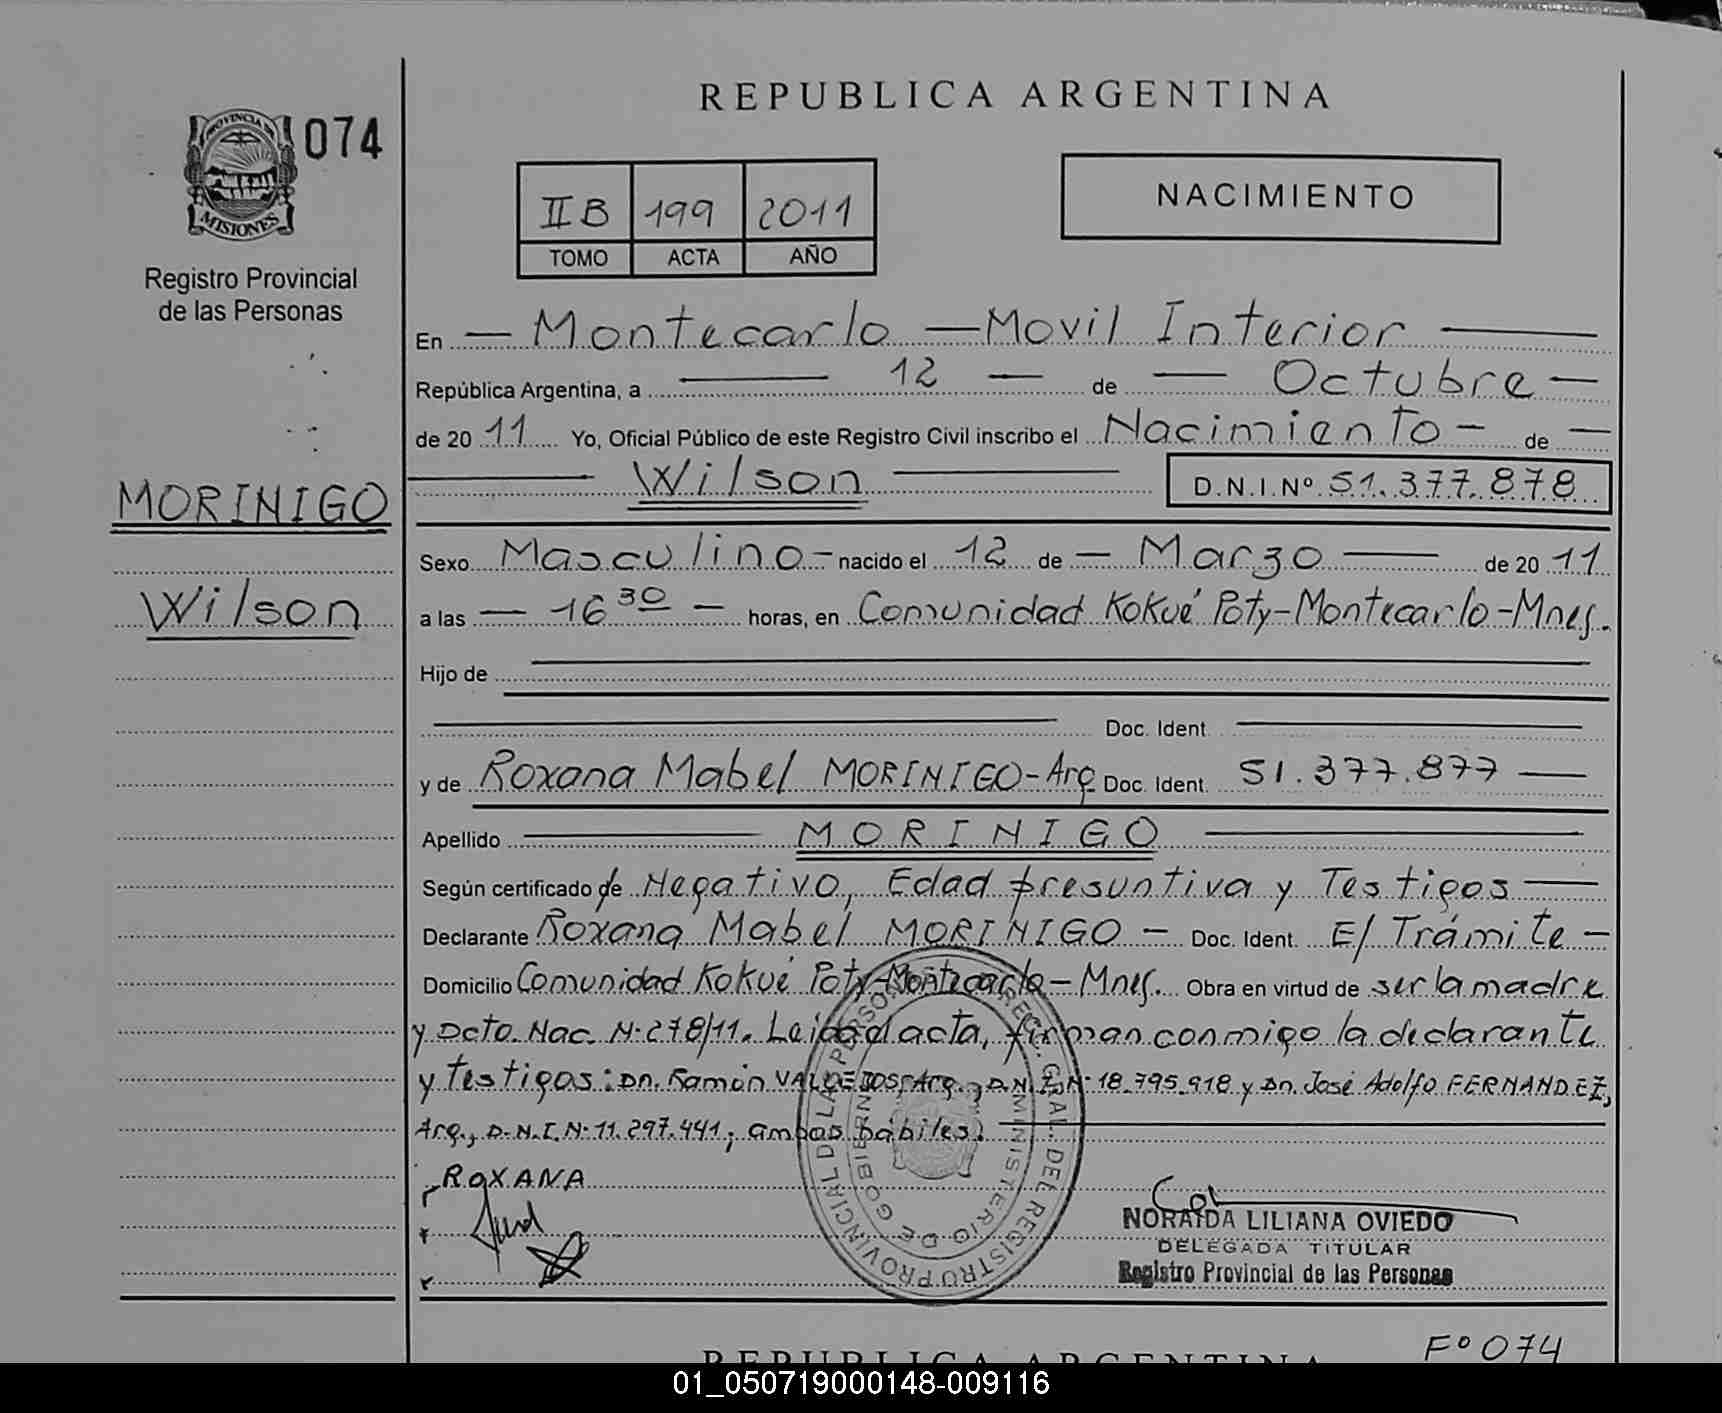 REPUBLICA ARGENTINA
PROVINCIA DE
MISIONES
074
Registro Provincial
de las Personas
MORINIGO
Wilson
II B 199 2011
TOMO ACTA AÑO
NACIMIENTO
En — Montecarlo — Movil Interior —
República Argentina, a — 12 — de — Octubre —
de 20 11 Yo, Oficial Público de este Registro Civil inscribo el Nacimiento — de —
— Wilson — D.N.I.Nº 51.377.878
Sexo Masculino - nacido el 12 de — Marzo — de 20 11
a las — 16 30 — horas, en Comunidad Kokué Poty-Montecarlo-Mnes.
Hijo de
Doc. Ident.
y de Roxana Mabel MORINIGO-Arg Doc. Ident. 51.377.877 —
Apellido — MORINIGO —
Según certificado de Negativo, Edad presuntiva y Testigos —
Declarante Roxana Mabel MORINIGO — Doc. Ident. E/ Trámite —
Domicilio Comunidad Kokué Poty-Montecarlo-Mnes. Obra en virtud de ser la madre
y Dcto. Nac. N· 278/11. Leida el acta, firman conmigo la declarante
y testigos: Dn. Ramón VALLEJOS, Arg., D.N.I. N· 18.795.918 y Dn. José Adolfo FERNANDEZ,
Arg., D.N.I. N· 11.297.441; ambos hábiles. —
ROXANA
DIRECC. GRAL. DEL REGISTRO PROVINCIAL DE LAS PERSONAS
MINISTERIO DE GOBIERNO
NORAIDA LILIANA OVIEDO
DELEGADA TITULAR
Registro Provincial de las Personas
Fº 074
REPUBLICA ARGENTINA
01_050719000148-009116